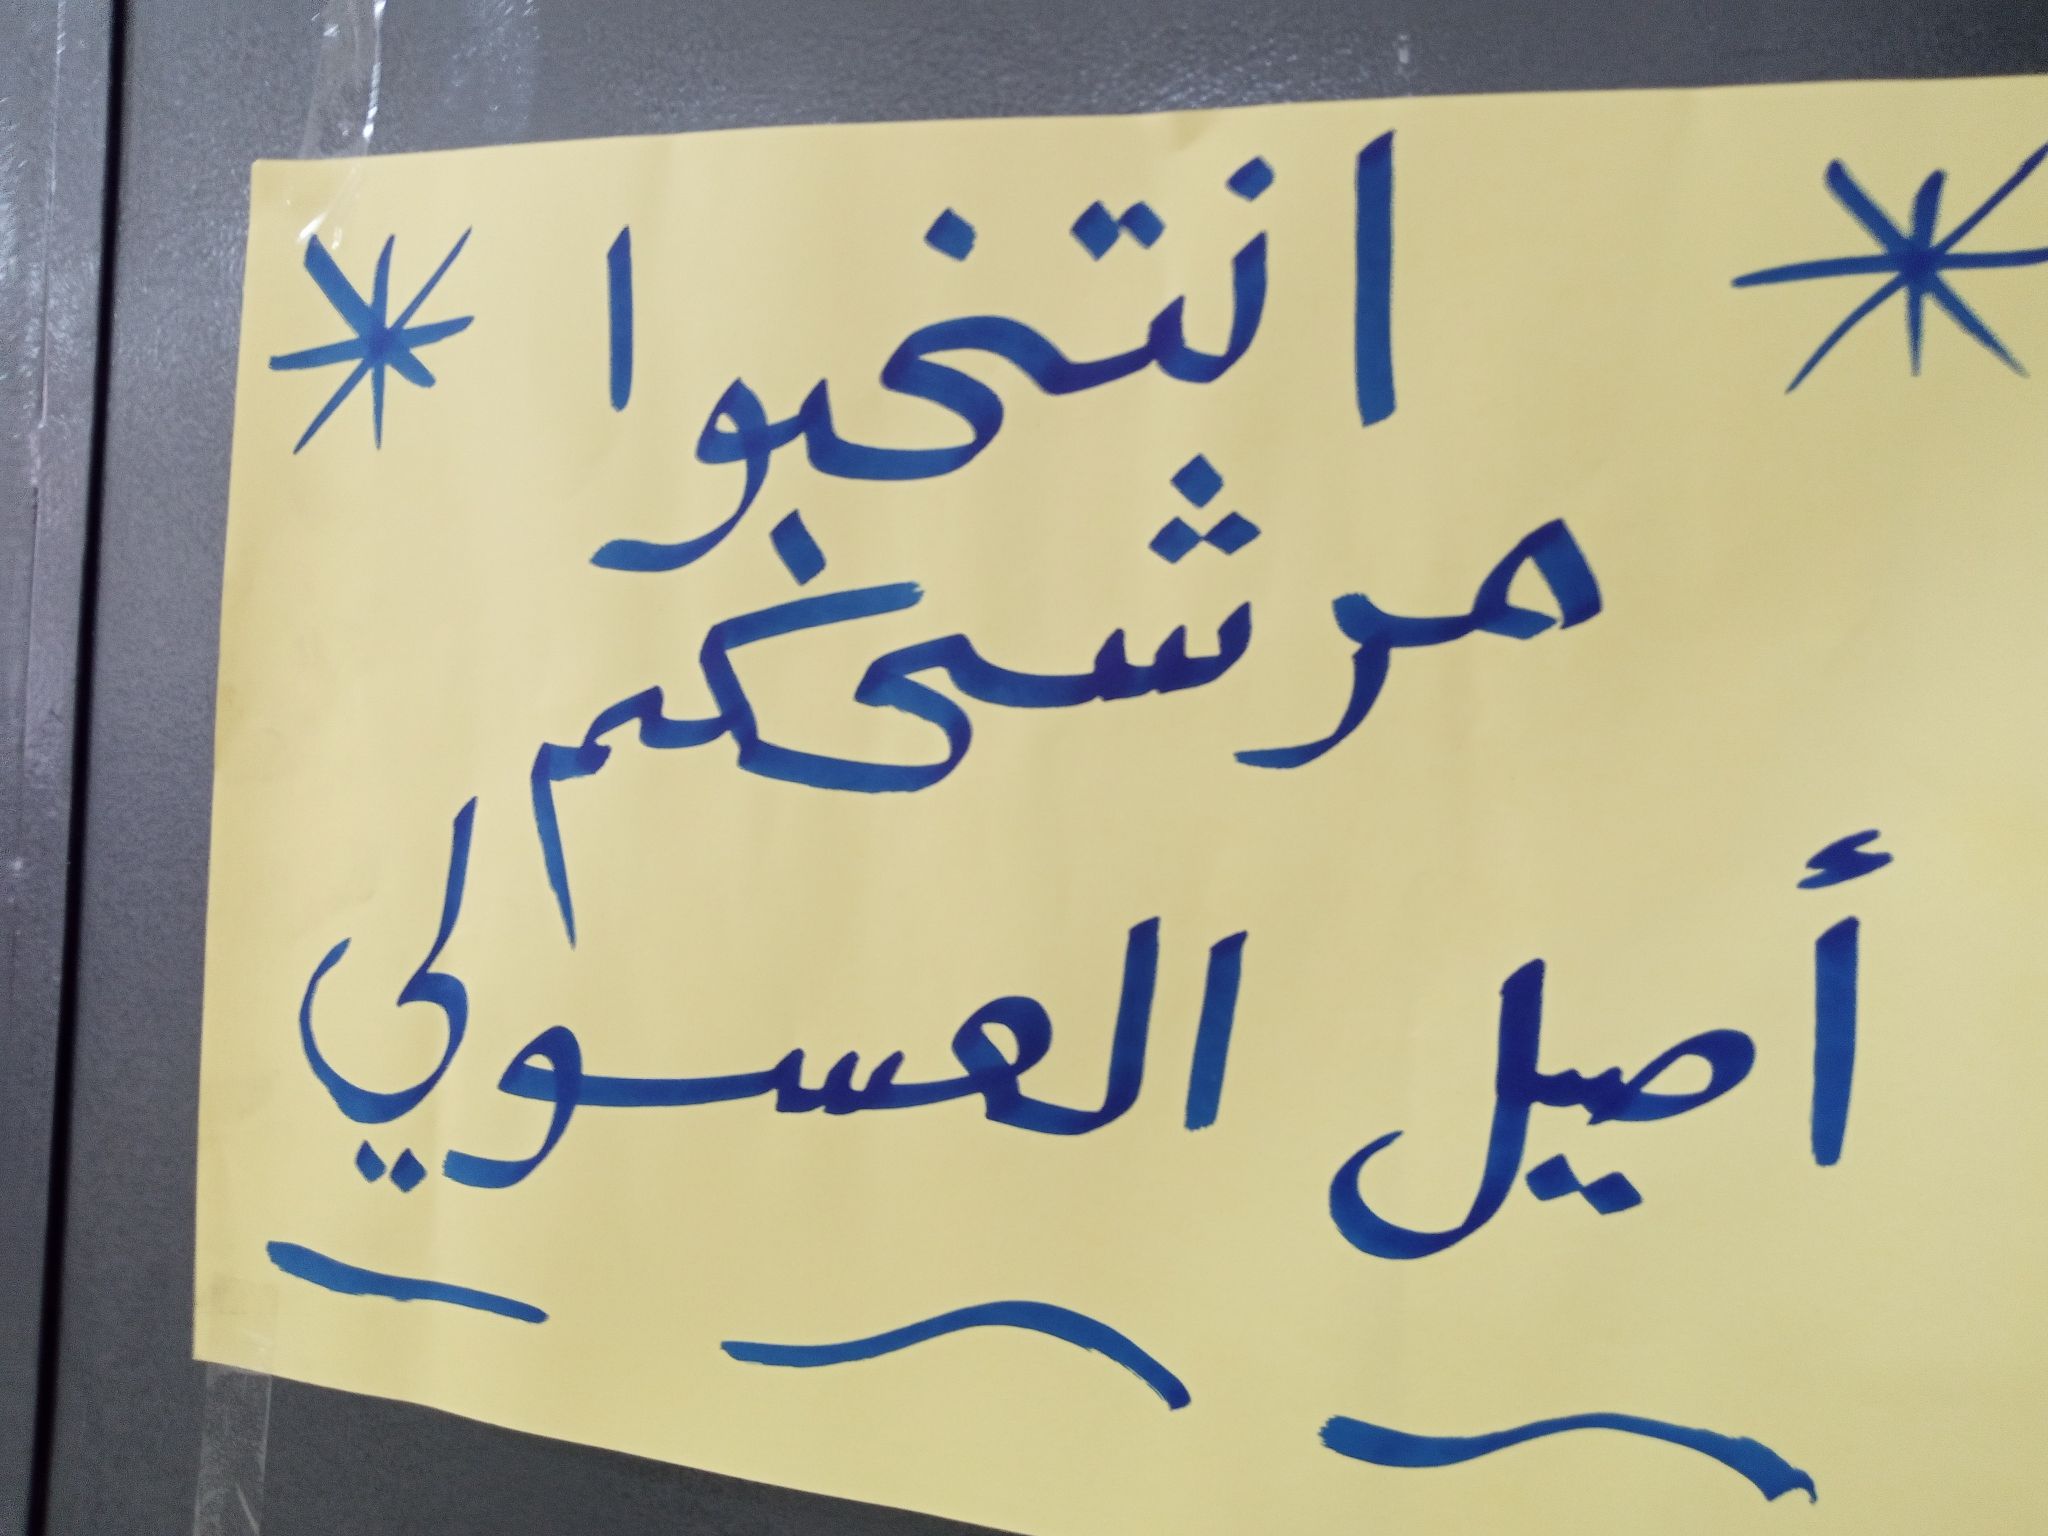 انتخبوا
مرشحكم
أصيل العسولي